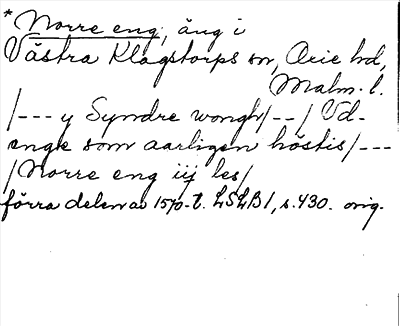 * Norre eng, äng i
Västra Klagstorps sn, Oxie hd,
Malm. l.
/--- y Syndre wongh/--/ Vd-
enge som aarligen höstis/---
/Norre eng iij les/
förra delen av 1570-t. LSLB 1, s. 430. orig.